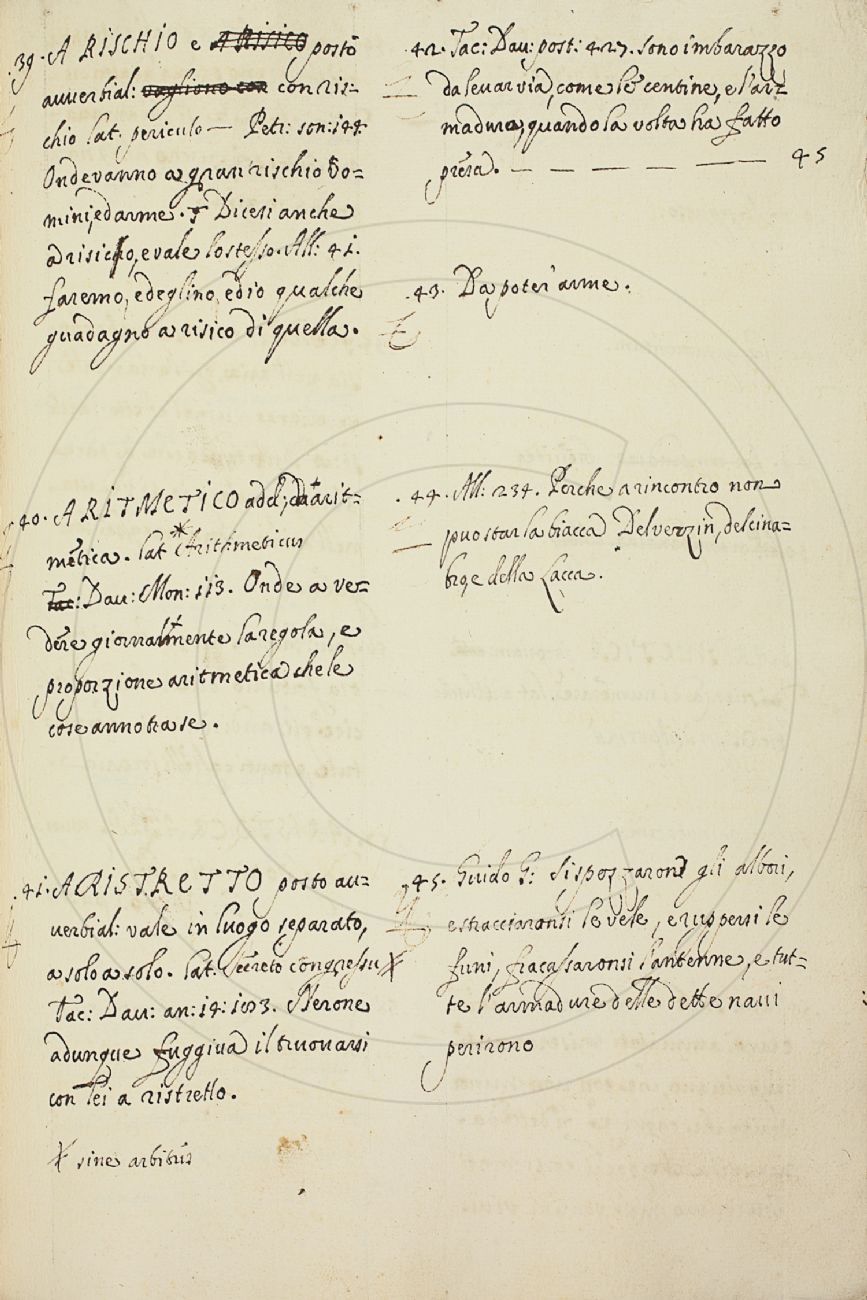 39. A RISCHIO e A Risico posto
avverbial: vagliono con con ris=
chio lat. periculo — Petr: son: 144
Onde vanno a gran rischio vo=
mini, ed arme. Dicesi anche
a risico, e vale lo stesso. All: 41.
faremo, ed eglino, ed io qualche
guadagno a risico di quella.
40. ARITMETICO add: d'arit=
metica. lat Arithmeticus
Tac: Dav: Mon: 113. Onde a ve=
dere giornalmente la regola, e
proporzione aritmetica che le
cose anno tra se.
41. A RISTRETTO posto av=
verbial: vale in luogo separato,
a solo a solo. lat. secreto congressu
Tac: Dav: an: 14: 193. Nerone
adunque fuggiva il truovarsi
con lei a ristretto.
sine arbitris
42. Tac: Dav: post: 427. sono imbarazzo
da levar via, come le centine, e l'ar=
madura, quando la volta ha fatto
presa. — — — — — 45
43. Da poter arme.
44. All: 234. Perche a rincontro non
puo star la biacca Del verzin, del cina=
bro, e della Lacca.
45. Guido G: Si spezzarono gli albori,
e stracciaronsi le vele, e ruppersi le
funi, fracassaronsi l'antenne, e tut=
te l'armadure delle dette navi
perirono